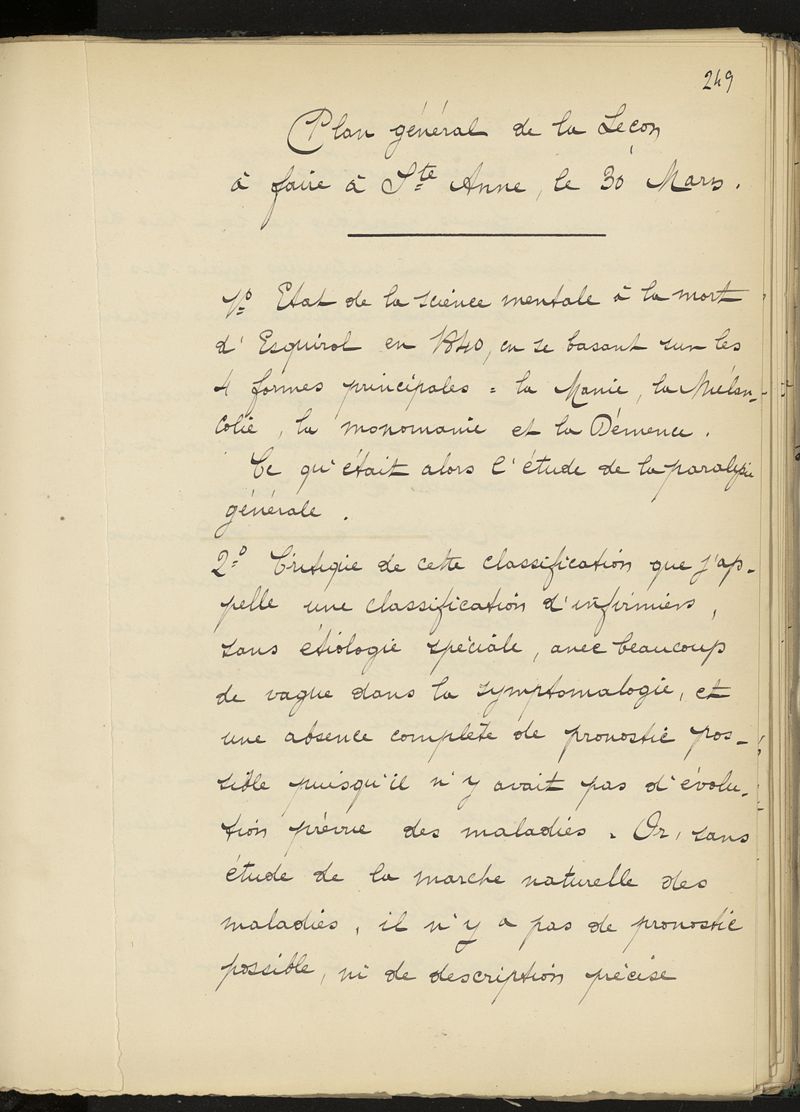 249
Plan général de la Leçon
à faire à Ste Anne, le 30 Mars.
1º Etat de la science mentale à la mort
d'Esquirol en 1840, en se basant sur les
4 formes principales = la Manie, la Mélan-
colie, la monomanie et la Démence.
Ce qu'était alors l'étude de la paralysie
générale.
2º Critique de cette classification que j'ap-
pelle une classification d'infirmiers,
sans étiologie spéciale, avec beaucoup
de vague dans la symptomalogie, et
une absence complète de pronostic pos-
sible puisqu'il n'y avait pas d'évolu-
tion prévue des maladies. Or, sans
étude de la marche naturelle des
maladies, il n'y a pas de pronostic
possible, ni de description précise